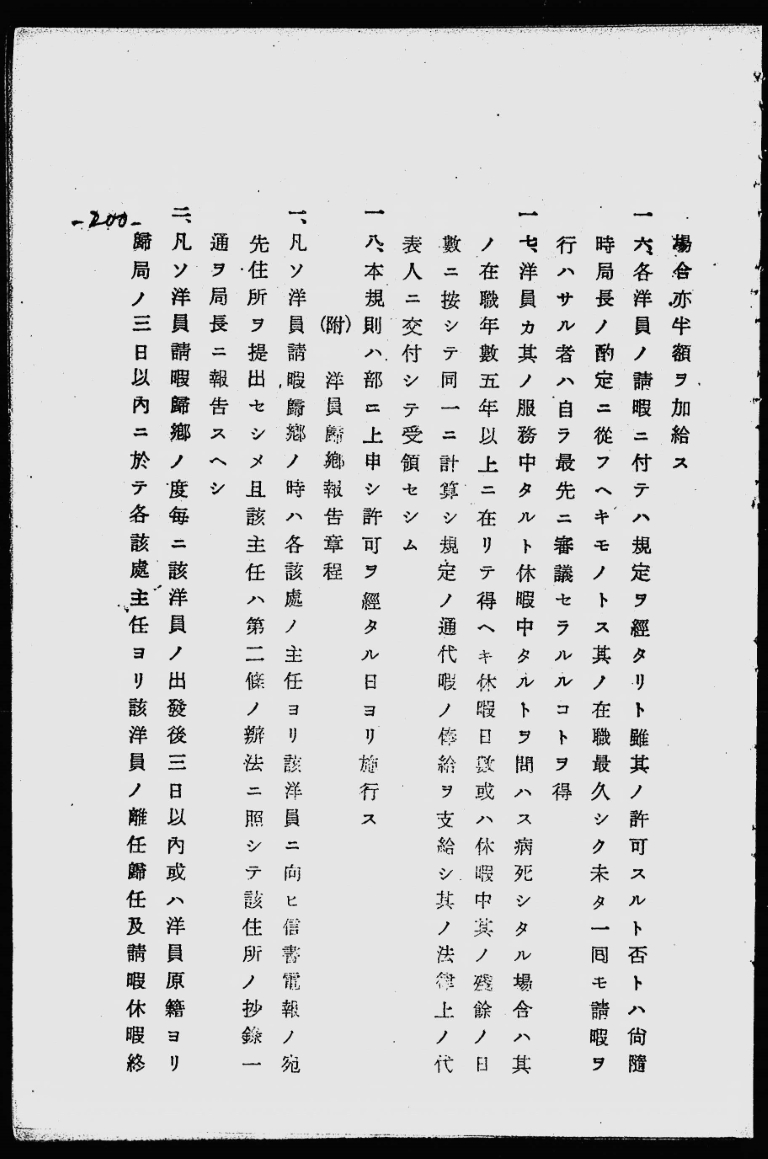 場合亦半額ヲ加給ス
一六、各洋員ノ請暇ニ付テハ規定ヲ經タリト雖其ノ許可スルト否トハ尙隨
時局長ノ酌定ニ從フヘキモノトス其ノ在職最久シク未タ一囘モ請暇ヲ
行ハサル者ハ自ラ最先ニ審議セラルルコトヲ得
一七、洋員カ其ノ服務中タルト休暇中タルトヲ問ハス病死シタル場合ハ其
ノ在職年數五年以上ニ在リテ得ヘキ休暇日數或ハ休暇中其ノ殘餘ノ日
數ニ按シテ同一ニ計算シ規定ノ通代暇ノ俸給ヲ支給シ其ノ法律上ノ代
表人ニ交付シテ受領セシム
一八、本規則ハ部ニ上申シ許可ヲ經タル日ヨリ施行ス
(附) 洋員歸鄕報告章程
一、凡ソ洋員請暇歸鄕ノ時ハ各該處ノ主任ヨリ該洋員ニ向ヒ信書電報ノ宛
先住所ヲ提出セシメ且該主任ハ第二條ノ辦法ニ照シテ該住所ノ抄錄一
通ヲ局長ニ報告スヘシ
二、凡ソ洋員請暇歸鄕ノ度每ニ該洋員ノ出發後三日以內或ハ洋員原籍ヨリ
歸局ノ三日以內ニ於テ各該處主任ヨリ該洋員ノ離任歸任及請暇休暇終
-200-